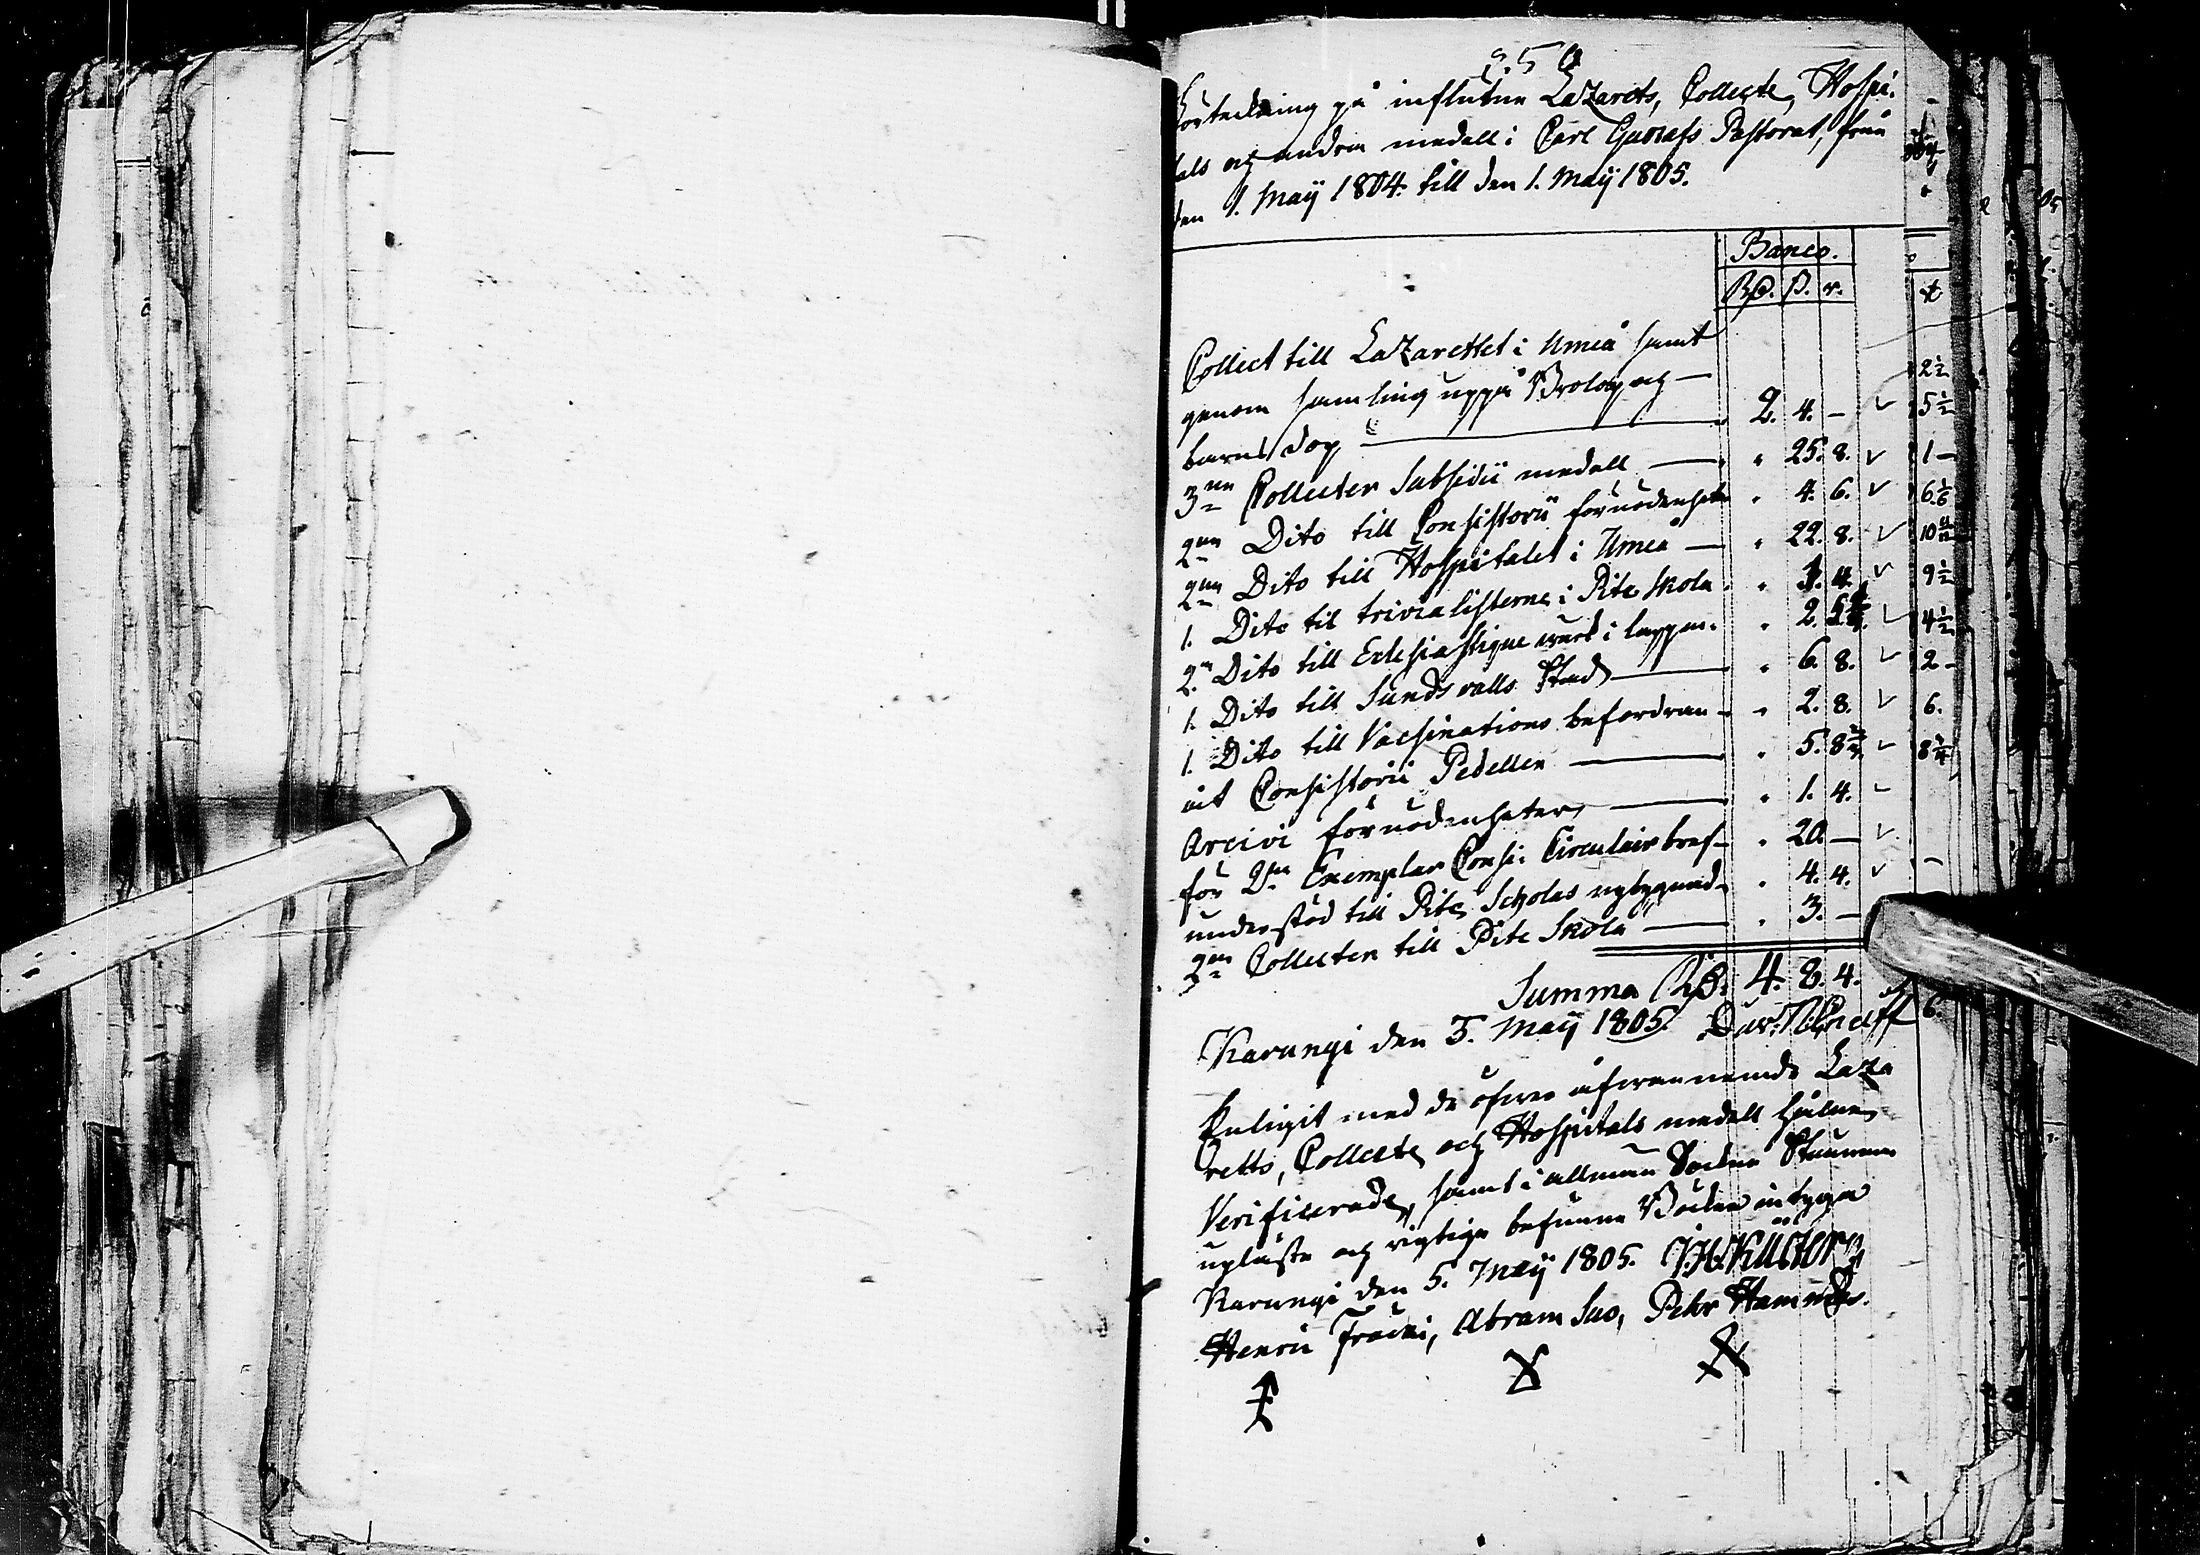 Förteckning på influtne Lazarets, Collecte, Hospi-
tals och andra medell i Carl Gustafs Pastorat, från
den 1. Maij 1804. till den 1. Maij 1805.
Banco.
Rd. ß. r.
Collect till Lazarettet i Umeå samt
genom samling uppå Brölop och
barns dop 2. 4. —
3ne Collecter Subsidii medell " 25. 8.
2ne Dito till Consistorii förnödenheter " 4. 6.
2ne Dito till Hospitalet i Umeå " 22. 8.
1. Dito til trivialisterne i Pite Skola " 1. 4.
2ne Dito till Eclesiastique wärk i lappm. " 2. 5
1. Dito till Sundsvalls Stad " 6. 8.
1. Dito till Vacsinations befordran " 2. 8.
åt Consistorii Pedellen " 5. 8
Arcivi förnödenheter " 1. 4.
för 2ne Exemplar Cons: Circulair bref " 20 —
understöd till Pite Scholas nybyggnad " 4. 4.
2ne Collecter till Pite Skola " 3. —
Summa Rd. 4. 8. 4.
Karungi den 5. Maij 1805.
Enligit med de öfver äfvannemde Laza
retts, Collecte och Hospitals medell
Verificerade, samt i allmän Sockne Stämma
upläste och rigtige befunne Böcker intyga
Karungi den 5. Maij 1805.
Henric Abram Pehr